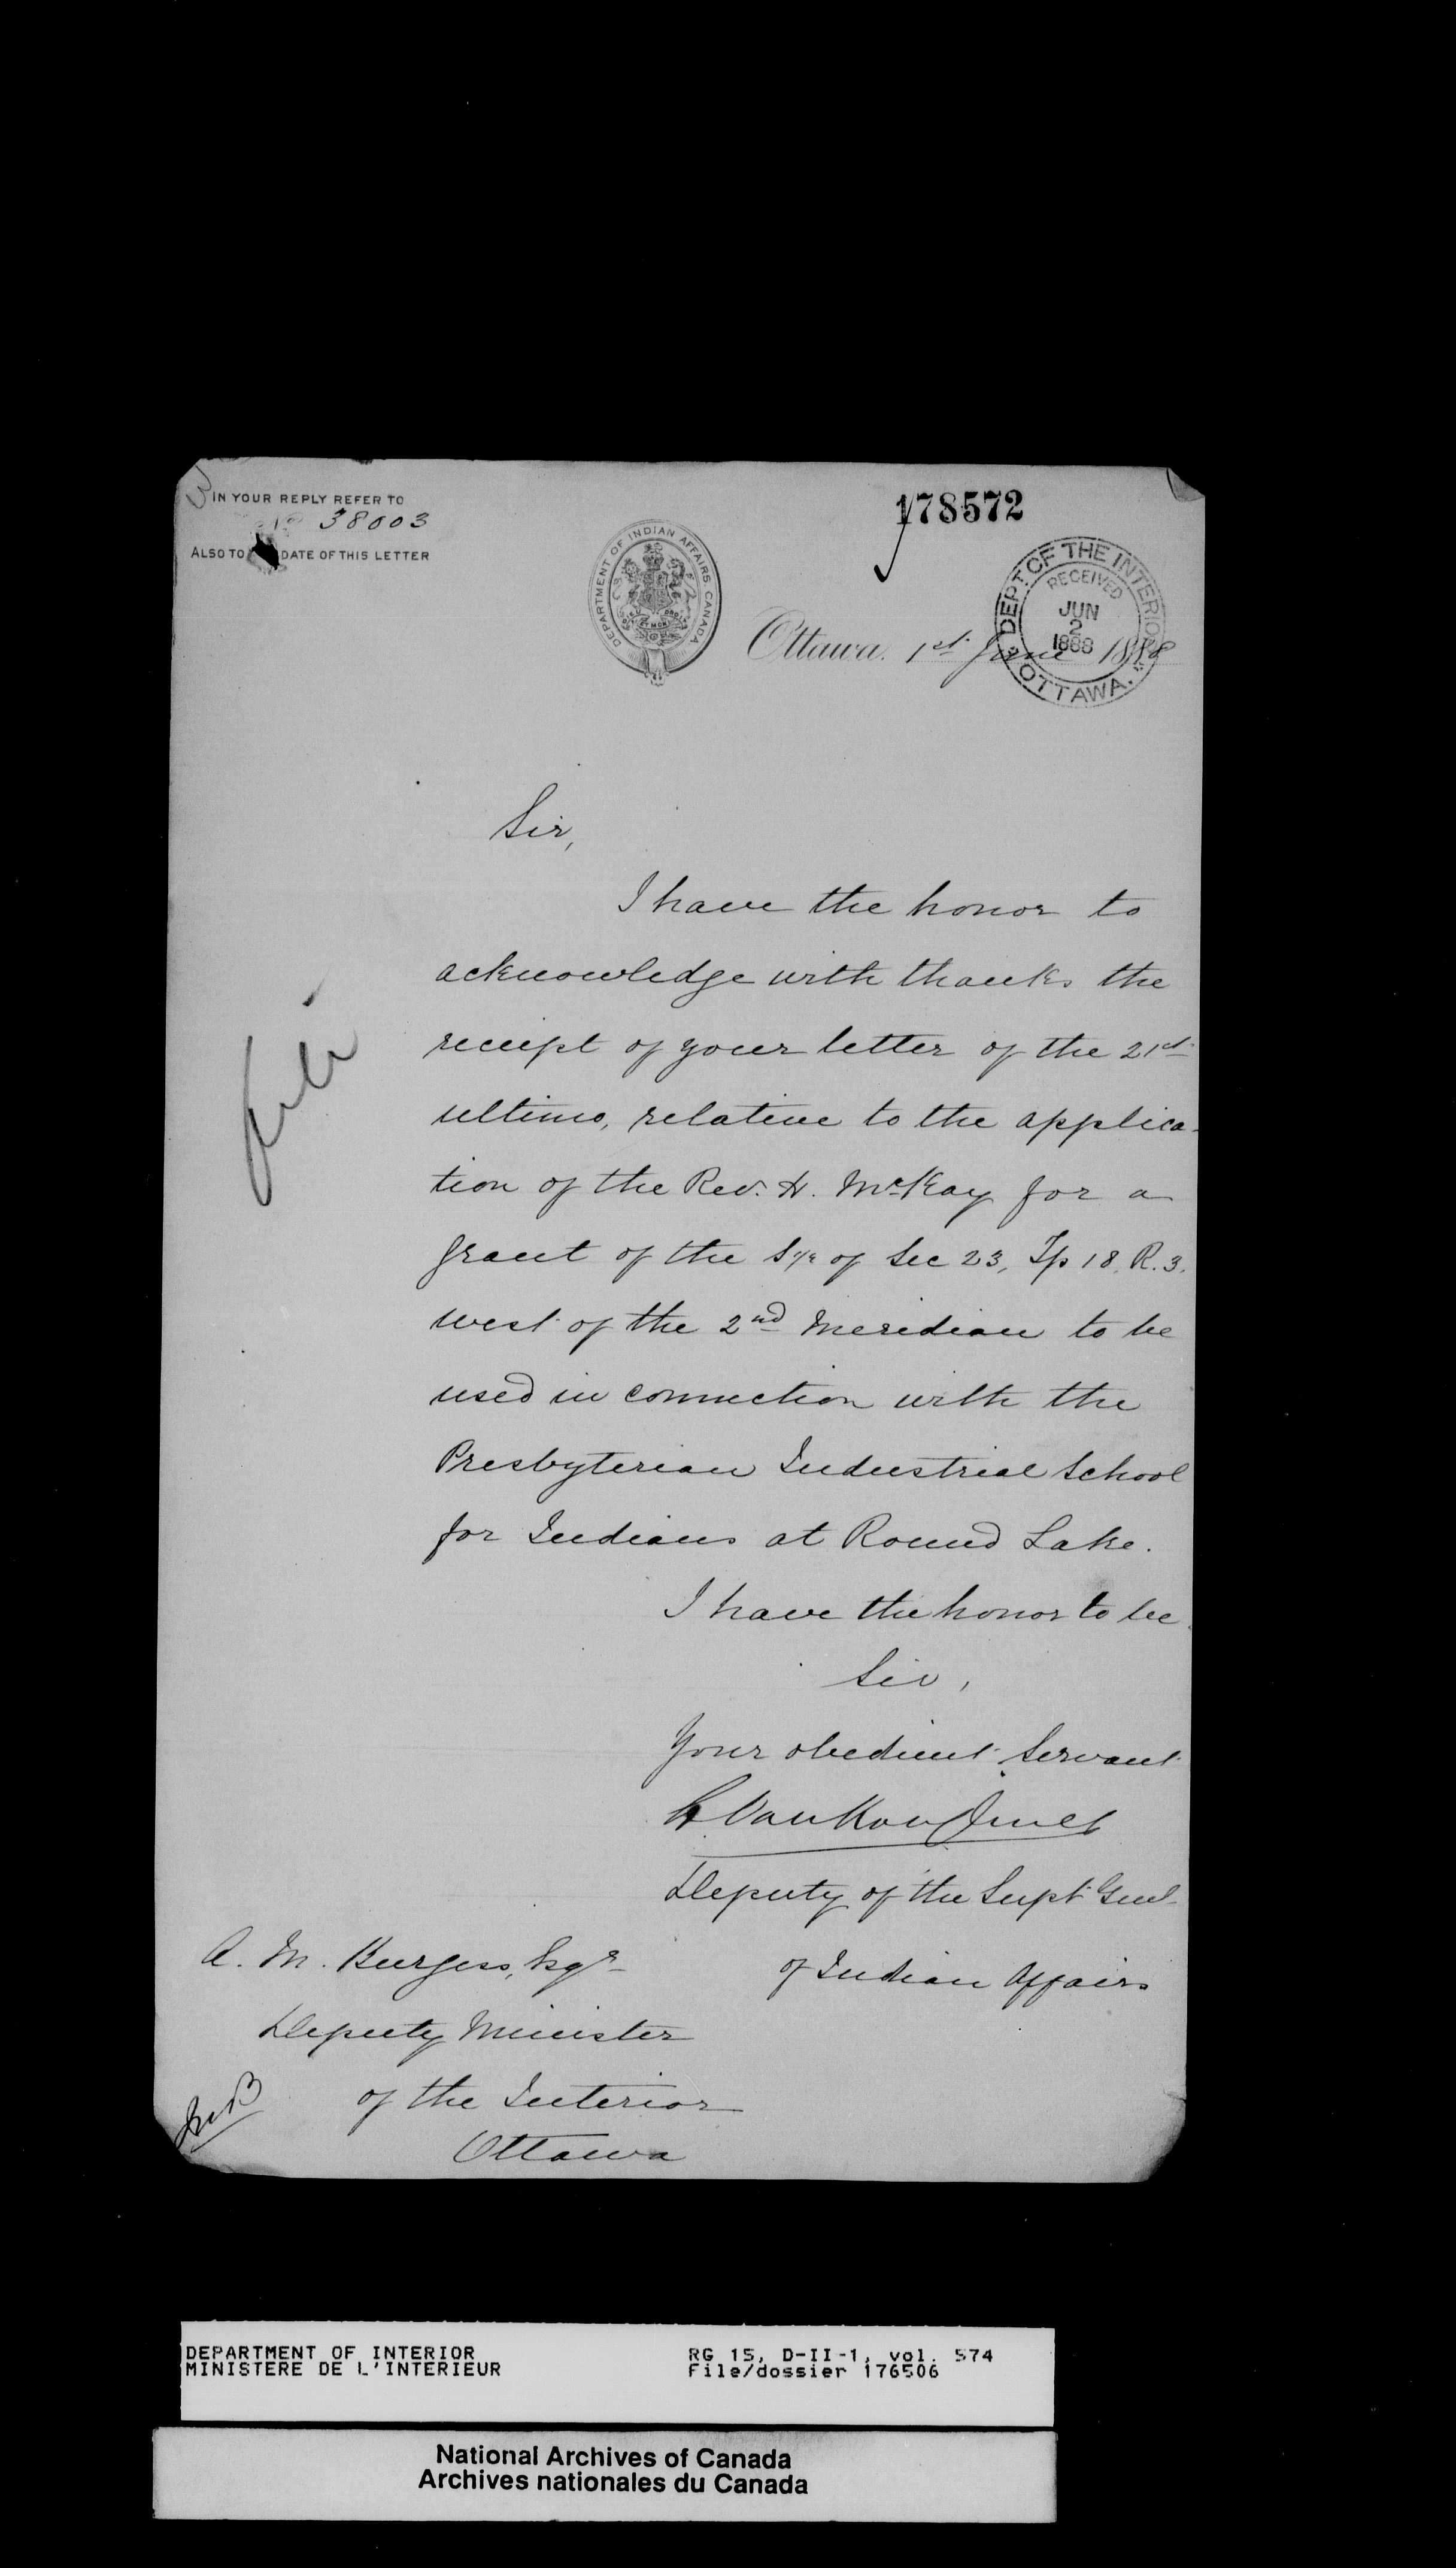 IN YOUR REPLY REFER TO
No 38003
ALSO TO DATE OF THIS LETTER
178572
DEPARTMENT OF INDIAN AFFAIRS CANADA
DEPT. OF THE INTERIOR
RECEIVED
JUN
2
1888
OTTAWA.
Ottawa. 1st June 1888
Sir,
I have the honor to
acknowledge with thanks the
receipt of your letter of the 21st
ultimo, relative to the applica-
tion of the Rev. H. McKay for a
grant of the S½ of Sec 23, Tp 18, R. 3.
west of the 2nd Meridian to be
used in connection with the
Presbyterian Industrial School
for Indians at Round Lake.
file
I have the honor to be
Sir,
Your obedient Servant
L. VanKoughnet
Deputy of the Supt Genl
of Indian Affairs
A. M. Burgess, Esqr
Deputy Minister
of the Interior
Ottawa
DEPARTMENT OF INTERIOR
MINISTERE DE L'INTERIEUR
RG 15, D-II-1, vol. 574
File/dossier 176506
National Archives of Canada
Archives nationales du Canada